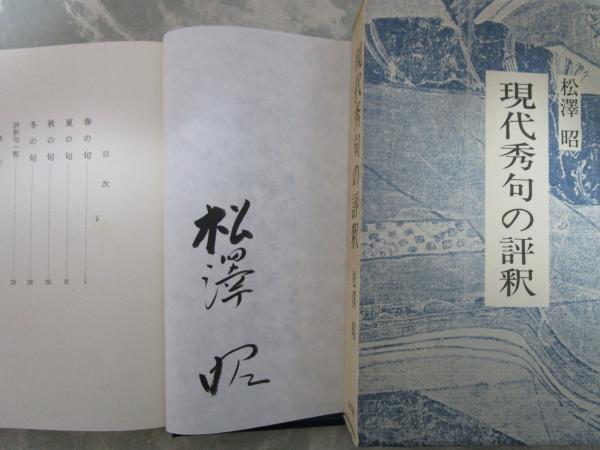 松澤 昭
現代秀句の評釈
現代秀句の評釈
松澤 昭
目次
春の句
夏の句
秋の句
冬の句
評釈句一覧